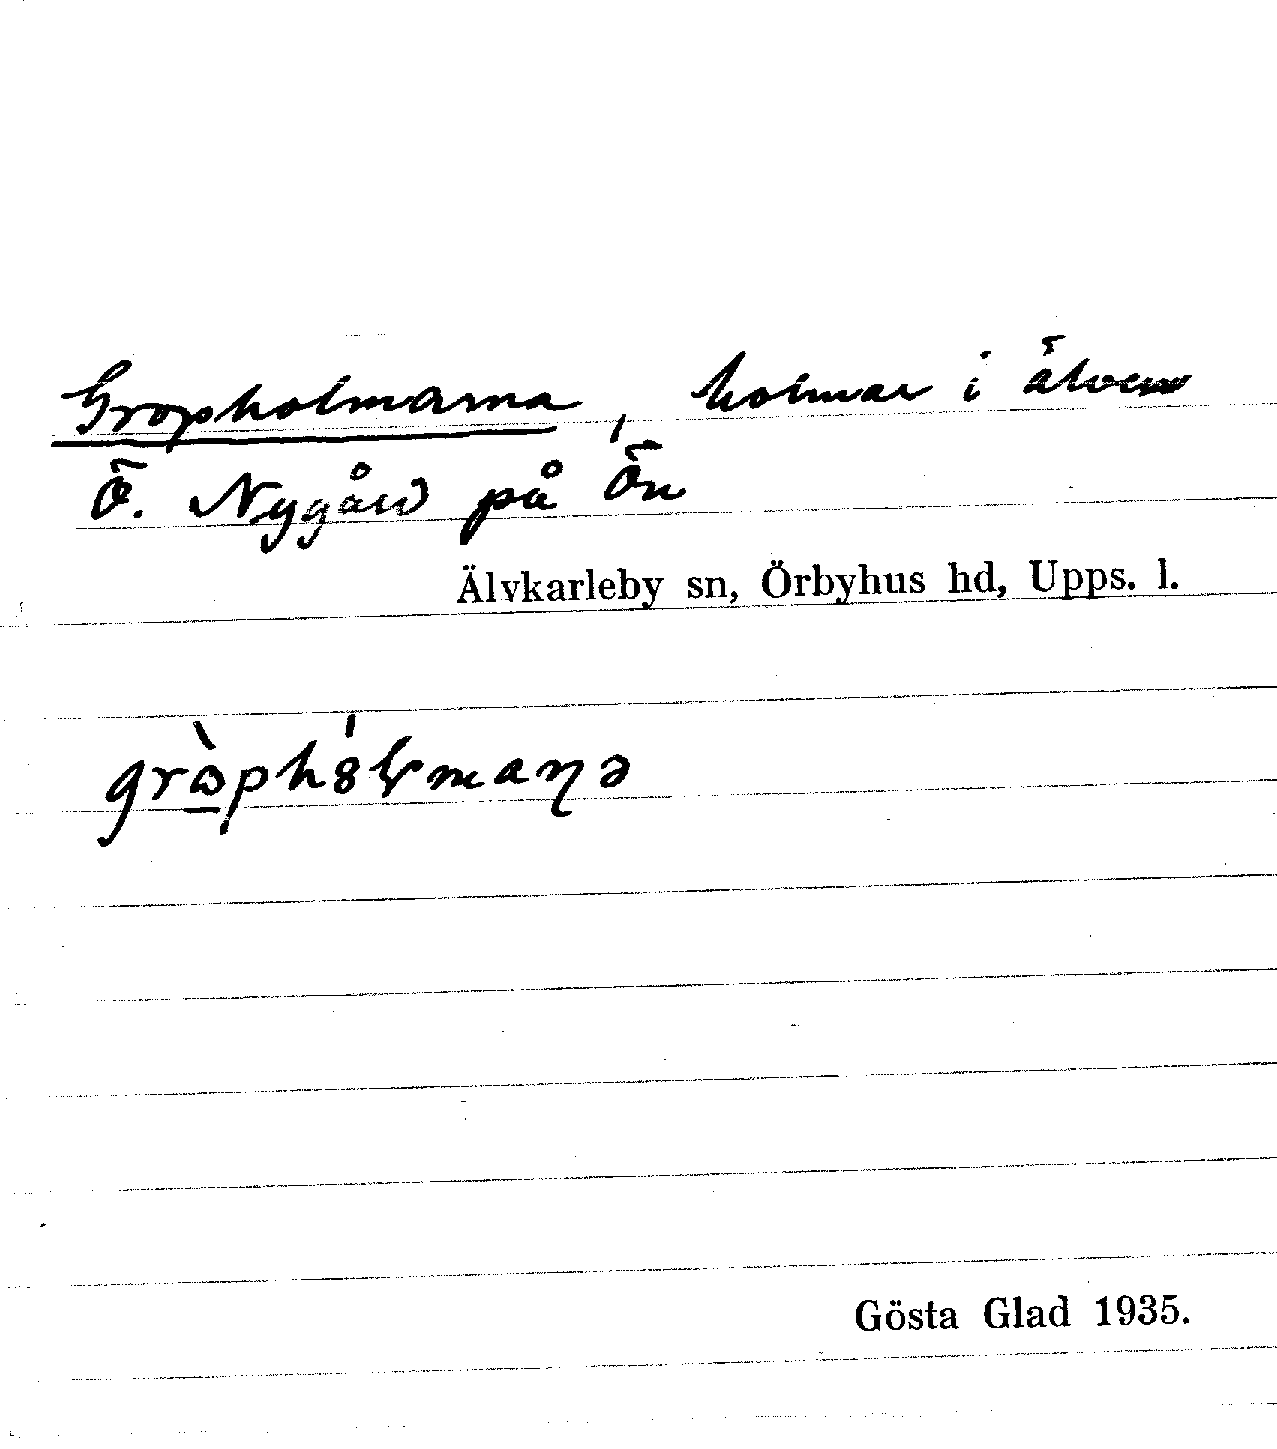 Gropholmarna, holmar i älven
Ö. Nygård på Ön
Älvkarleby sn, Örbyhus hd, Upps. l.
Gösta Glad 1935.